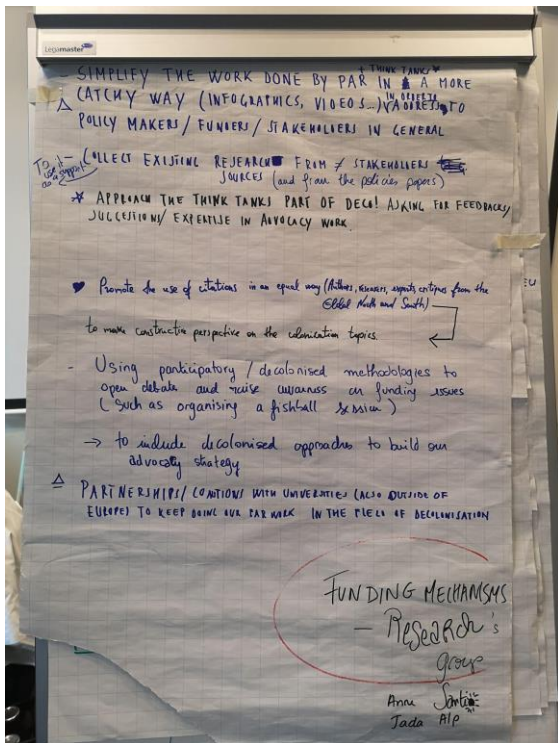 Legamaster
+ THINK TANKS *
- SIMPLIFY THE WORK DONE BY PAR IN A MORE
CATCHY WAY (INFOGRAPHICS, VIDEOS...) IN ORDER TO ADDRESS TO
POLICY MAKERS / FUNDERS / STAKEHOLDERS IN GENERAL
To use it as a support
- COLLECT EXISTING RESEARCH FROM ≠ STAKEHOLDERS
SOURCES (and from the policies papers)
* APPROACH THE THINK TANKS PART OF DECO! ASKING FOR FEEDBACKS/
SUGGESTIONS/ EXPERTISE IN ADVOCACY WORK.
EU
♥ Promote the use of citations in an equal way (Authors, researchers, experts, critiques from the
Global North and South)
to make constructive perspective on the colonisation topics.
- Using participatory / decolonised methodologies to
open debate and raise awareness on funding issues
(such as organising a fishball session)
→ to include decolonised approaches to build our
advocacy strategy
△ PARTNERSHIPS/ COALITIONS WITH UNIVERSITIES (ALSO OUTSIDE OF
EUROPE) TO KEEP DOING OUR PAR WORK IN THE FIELD OF DECOLONISATION
FUNDING MECHANISMS
- RESEARCH's
group
Anne Santi
Jada Alp